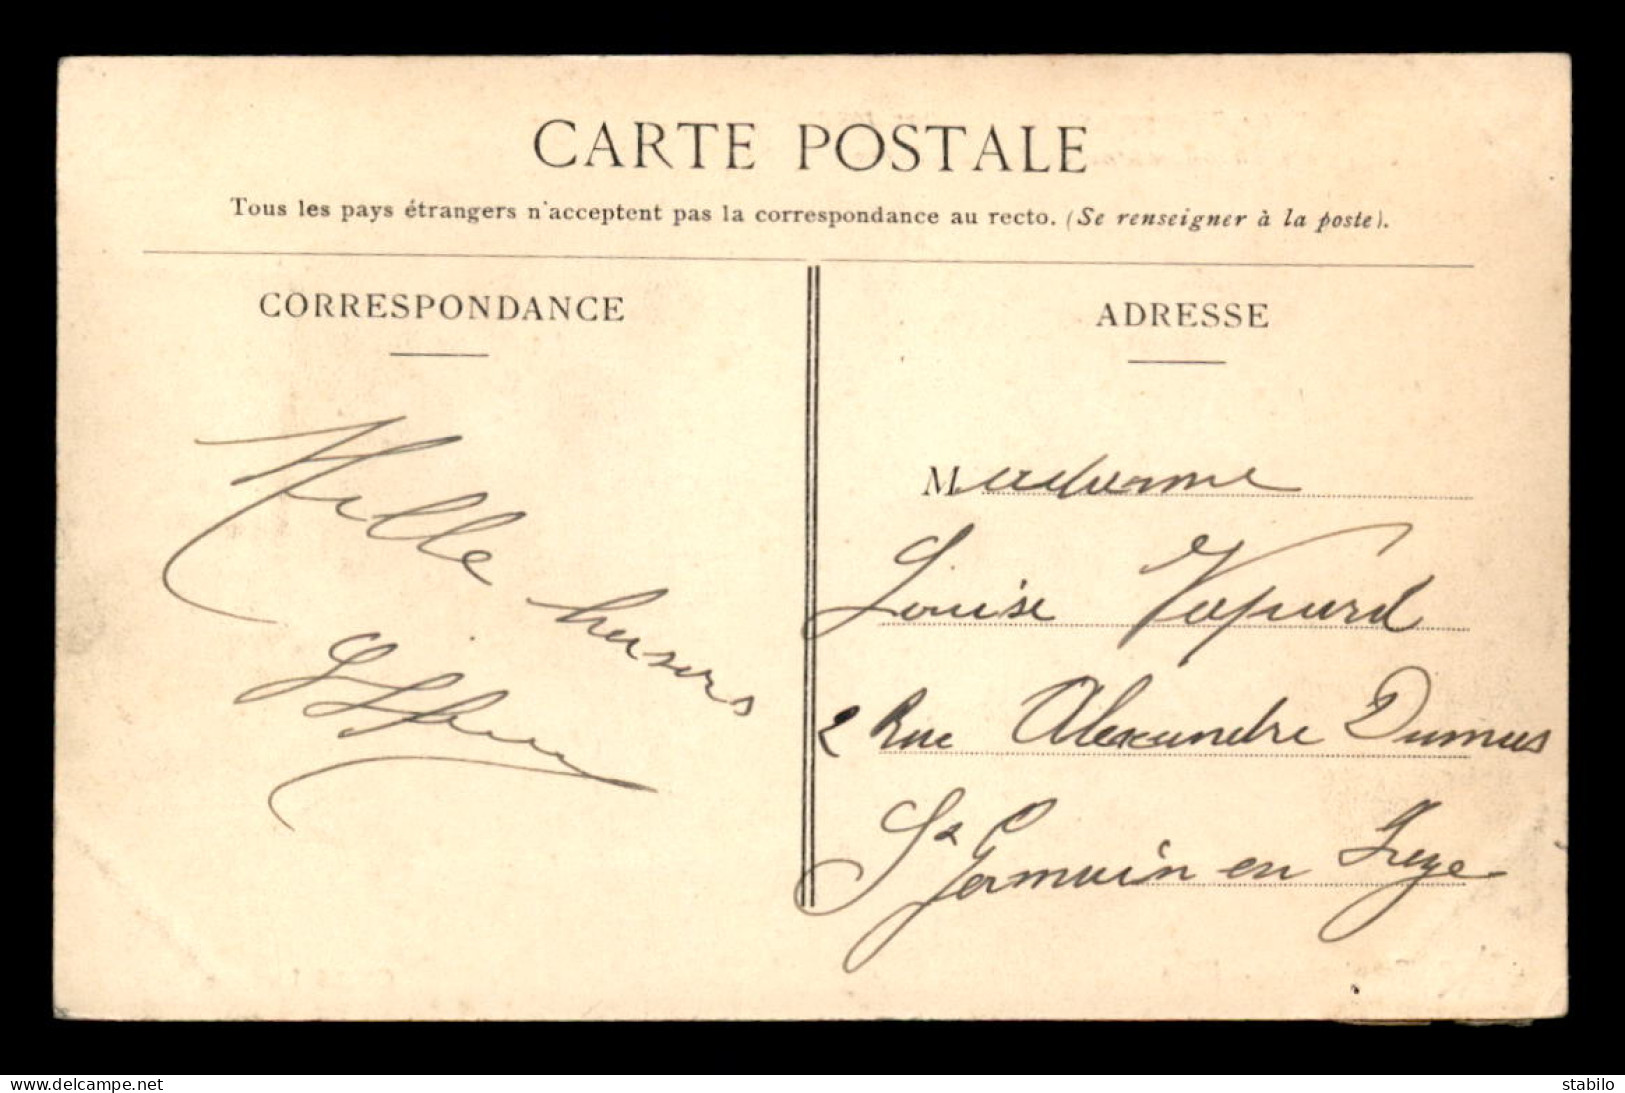 CARTE POSTALE
Tous les pays étrangers n'acceptent pas la correspondance au recto. (Se renseigner à la poste).
CORRESPONDANCE
Mille
baisers
ADRESSE
Madame
Louise Vapard
2 Rue Alexandre Dumas
St Germain en Laye
www.delcampe.net
stabilo